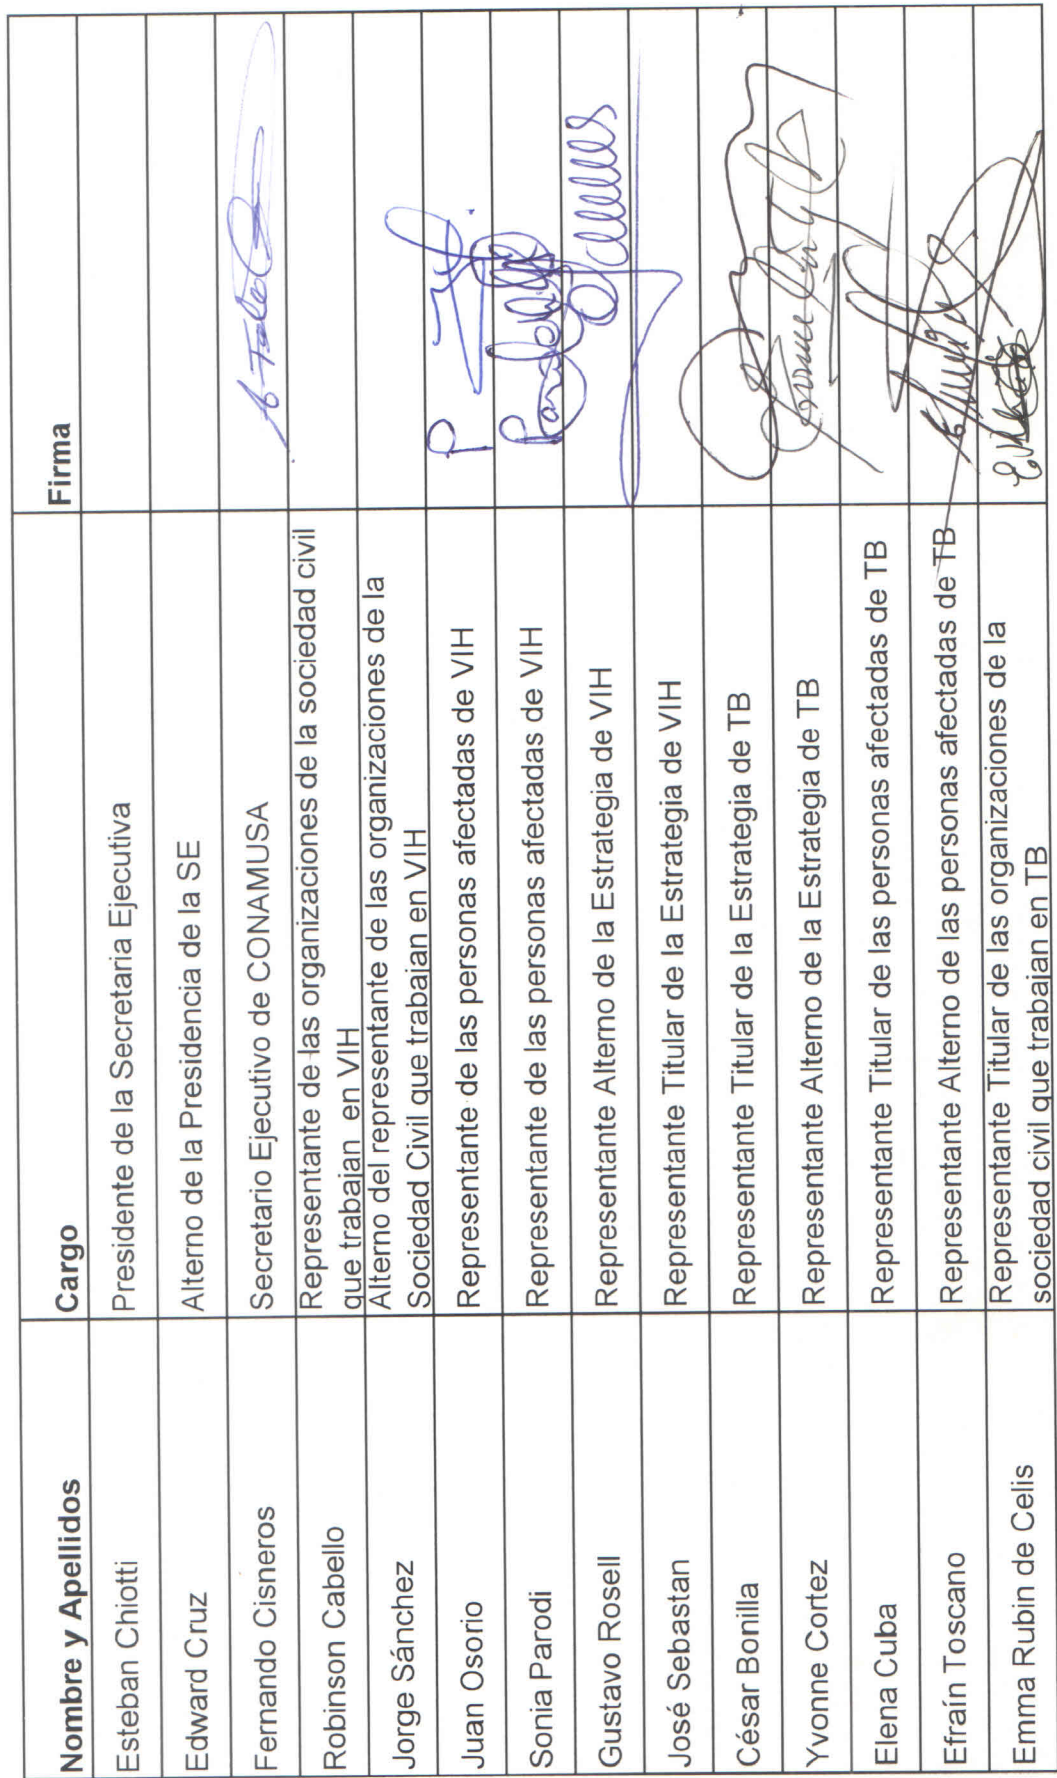 Nombre y Apellidos Cargo Firma
Esteban Chiotti Presidente de la Secretaria Ejecutiva
Edward Cruz Alterno de la Presidencia de la SE
Fernando Cisneros Secretario Ejecutivo de CONAMUSA
Robinson Cabello Representante de las organizaciones de la sociedad civil
que trabajan en VIH
Jorge Sánchez Alterno del representante de las organizaciones de la
Sociedad Civil que trabajan en VIH
Juan Osorio Representante de las personas afectadas de VIH
Sonia Parodi Representante de las personas afectadas de VIH
Gustavo Rosell Representante Alterno de la Estrategia de VIH
José Sebastan Representante Titular de la Estrategia de VIH
César Bonilla Representante Titular de la Estrategia de TB
Yvonne Cortez Representante Alterno de la Estrategia de TB
Elena Cuba Representante Titular de las personas afectadas de TB
Efraín Toscano Representante Alterno de las personas afectadas de TB
Emma Rubin de Celis Representante Titular de las organizaciones de la
sociedad civil que trabajan en TB